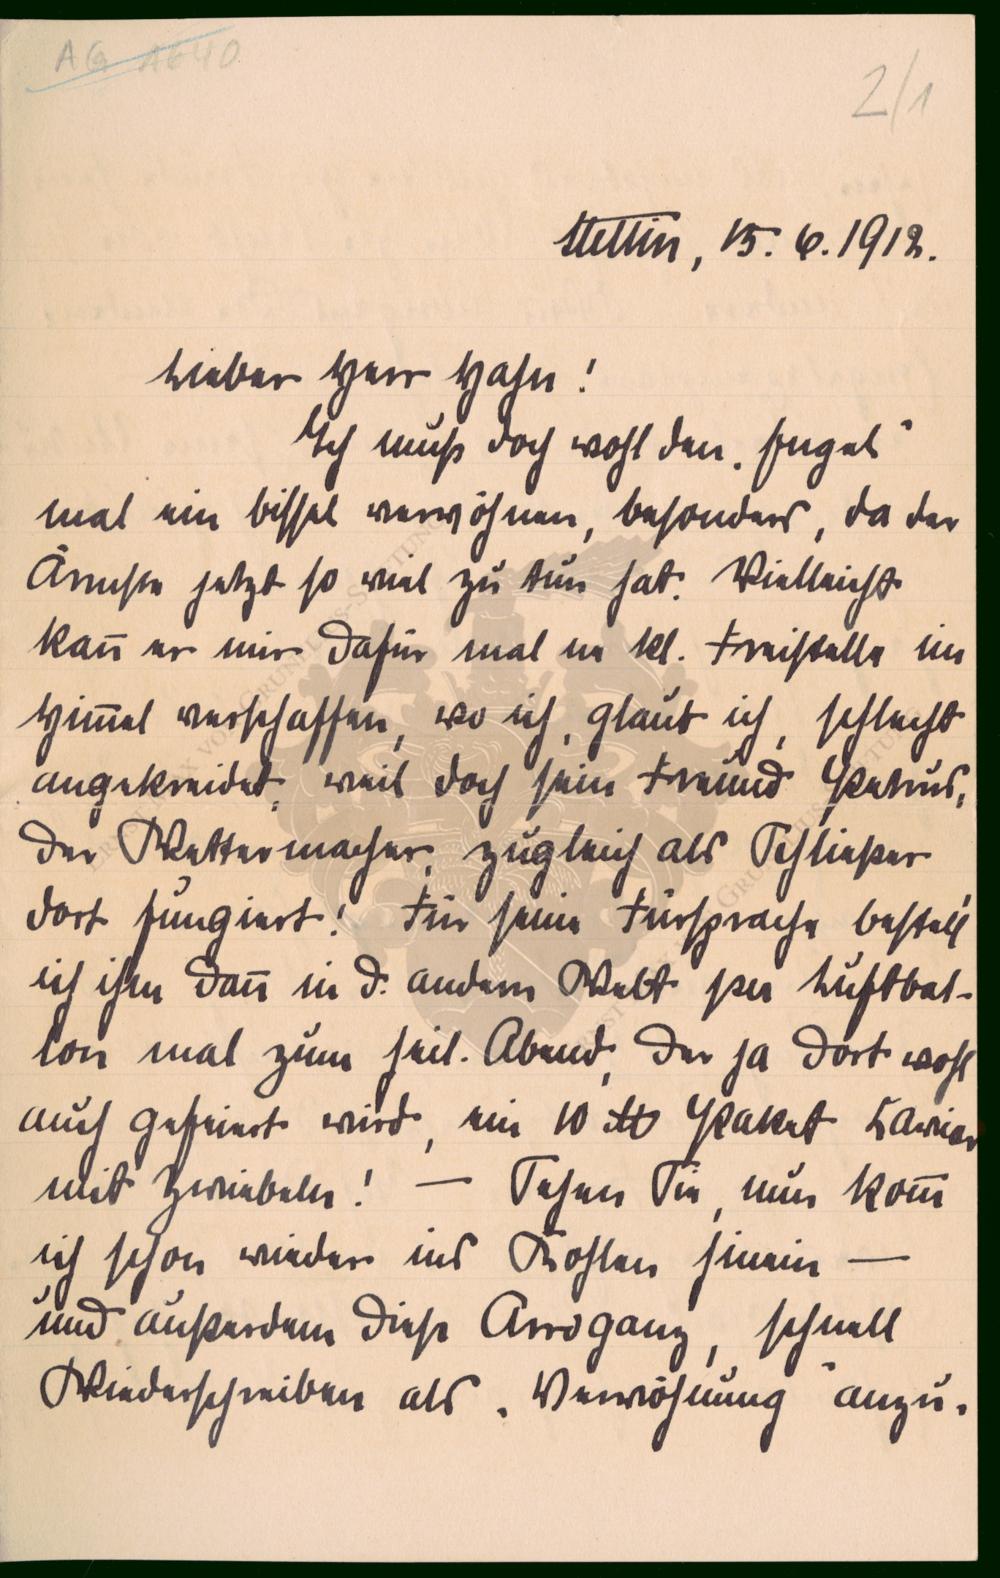 AG A640
2/1
Stettin, 15. 6. 1912.
Lieber Herr Hahn!
Ich muß doch wohl den „Engel“
mal ein bissel verwöhnen, besonders, da der
Ärmste jetzt so viel zu tun hat. Vielleicht
kan̄ er mir dafür mal ne kl. Freistelle im
Him̄el verschaffen, wo ich, glaub ich, schlecht
angekreidet, weil doch sein Freund Petrus,
der Wettermacher, zugleich als Schließer
dort fungiert! Für seine Fürsprache bestell'
ich ihm dan̄ in d. andern Welt per Luftbal-
lon mal zum heil. Abend, der ja dort wohl
auch gefeiert wird, ein 10 ℔ Paket Kaviar
mit Zwiebeln! — Sehen Sie, nun kom̄
ich schon wieder ins Kohlen hinein —
und außerdem diese Arroganz, schnell
Wiederschreiben als „Verwöhnung“ anzu-